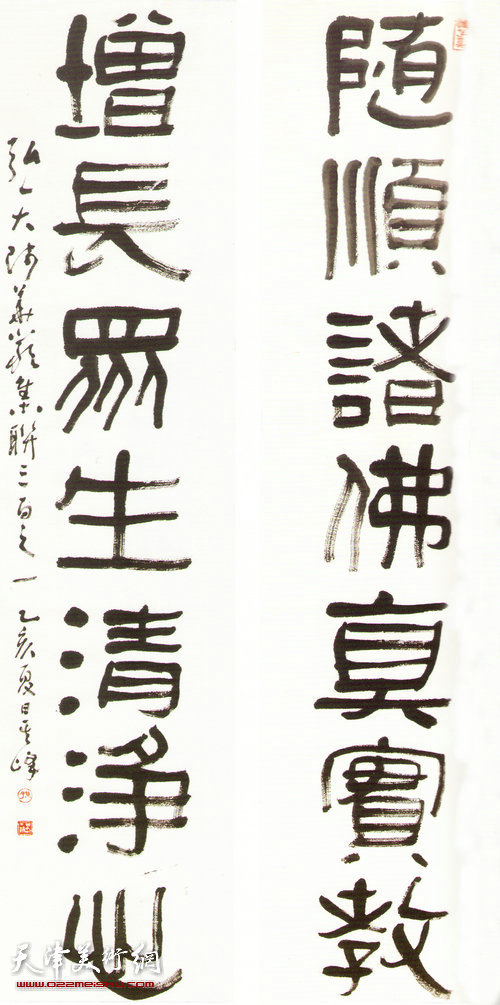 随順諸佛真實教
增長眾生清淨心
弘一大師華嚴集聯三百之一 乙亥夏日其峰
天津美術網
www.022meishu.com